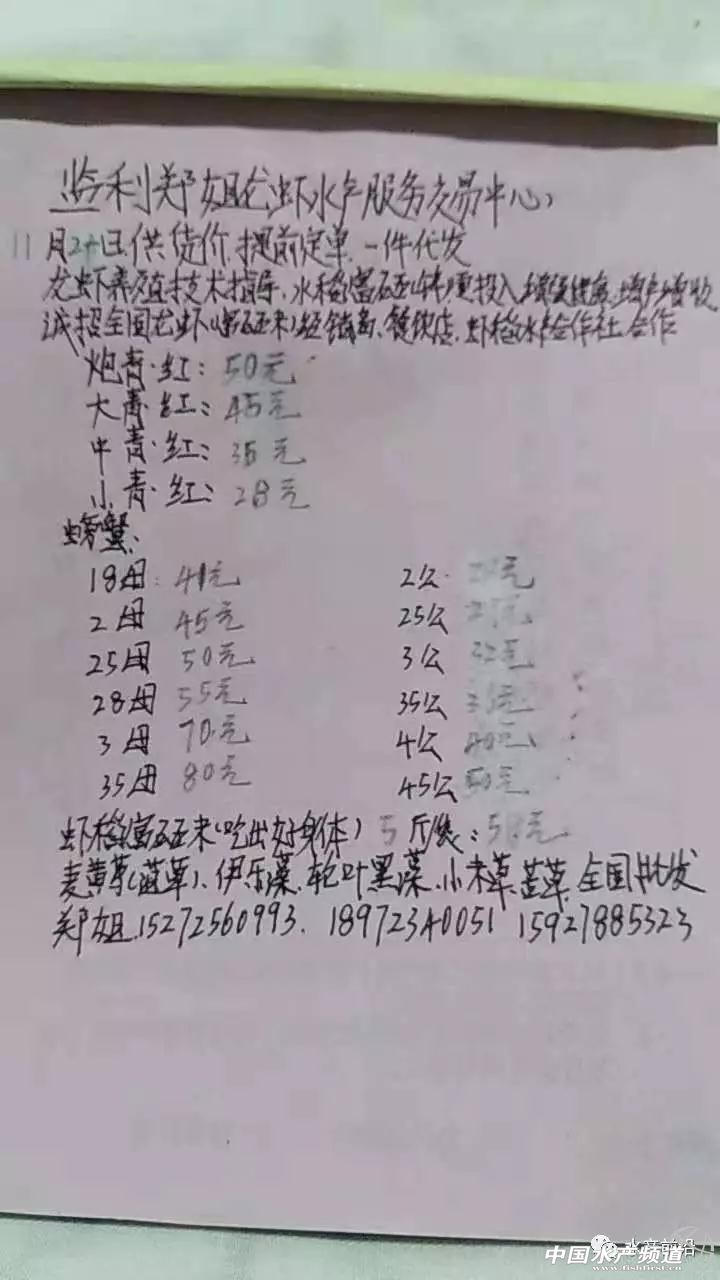 监利郑姐龙虾水产服务交易中心
11月2日供货价.提前定单.一件代发
龙虾养殖技术指导、水稻富硒(锌)更投入 增产增收
诚招全国龙虾(富硒米)经销商、餐饮店、虾稻水产合作社合作
炮青·红:50元
大青·红:45元
中青·红:35元
小青·红:28元
螃蟹:
18母:41元 2公 元
2母 45元 25公 元
25母 50元 3公 32元
28母 55元 35公 元
3母 70元 4公 40元
35母 80元 45公 50元
虾稻富硒米(吃出好身体)5斤袋:58元
麦黄草(菹草)、伊乐藻、轮叶黑藻、小米草 苦草 全国批发
郑姐.15272560993. 18972340051 15927885323
水产前沿
中国水产频道
www.fishfirst.cn